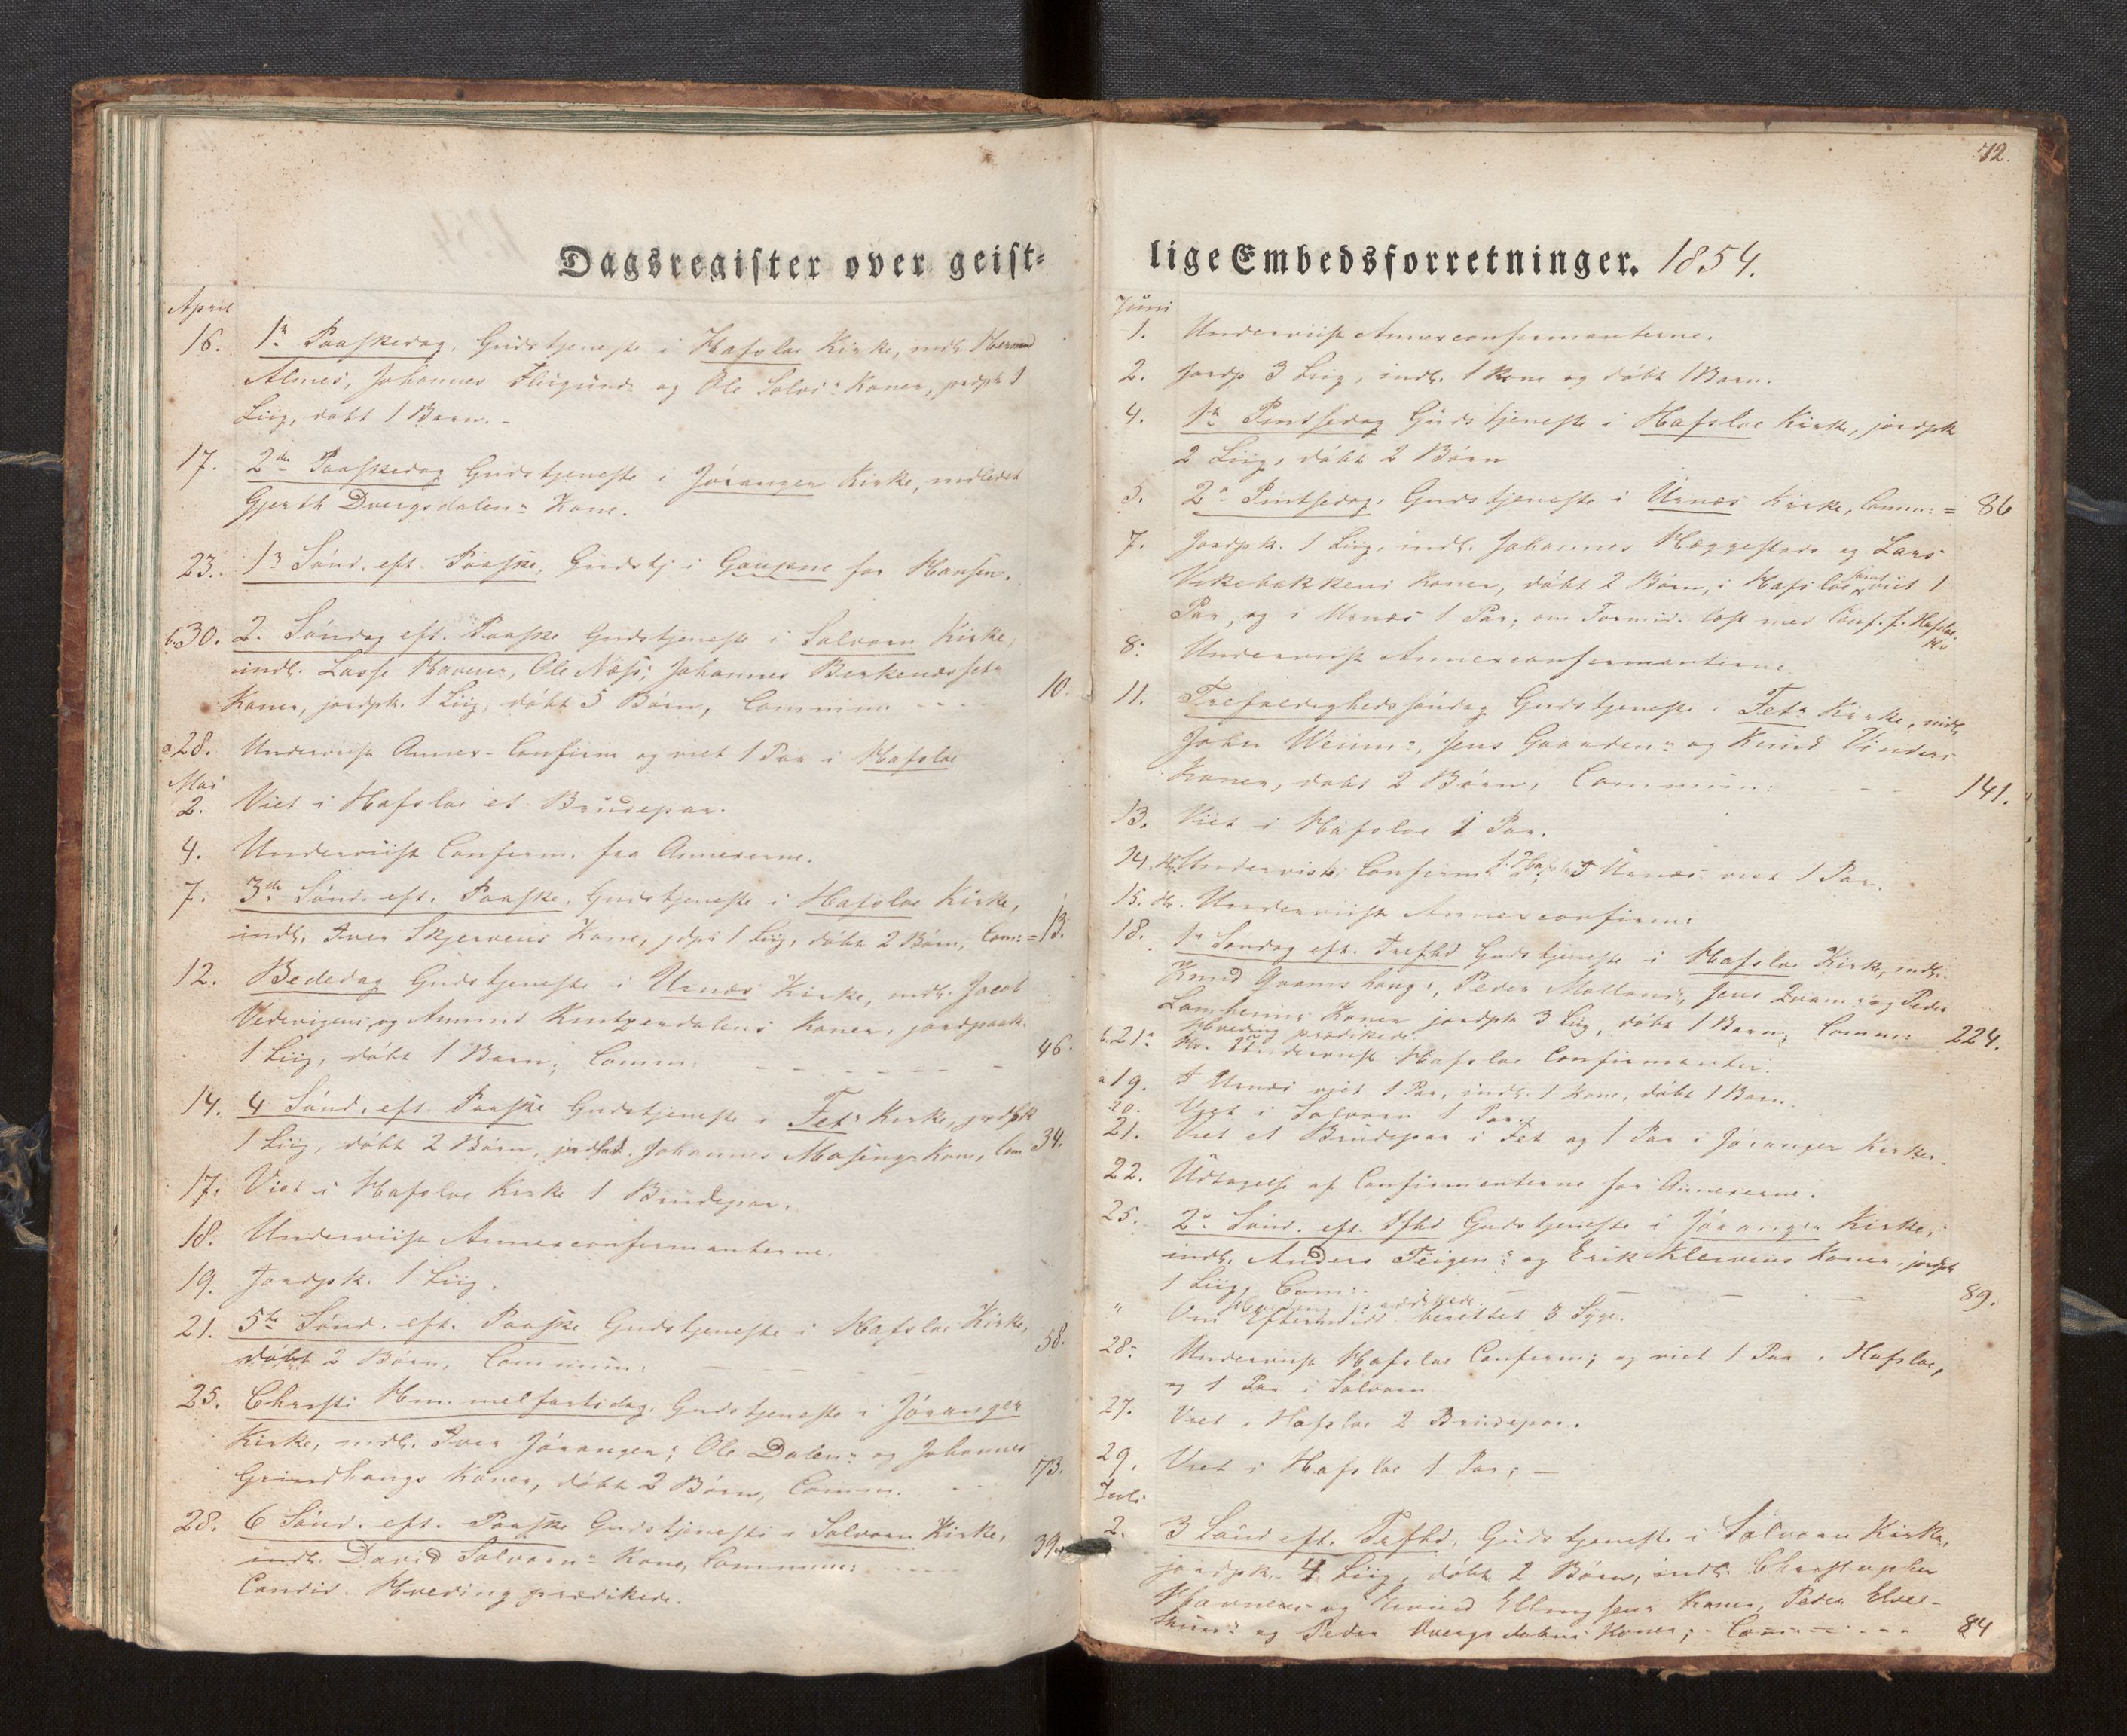 Dagsregister over geist-
April
16. 1ste Paaskedag. Gudstjeneste i Hafsloe Kirke, indl. Herman
Almes, Johannes og Ole Solvi: Koner, jordpk 1
Liig, døbt 1 Barn. -
17. 2den Paaskedag Gudstjeneste i Joranger Kirke, indledet
Gjerth Dvergsdalen: Kone.
23. 1ste Sønd. eft. Paaske, Gudstj. i Gaupne for Hansen.
b.30. 2. Søndag eft. Paaske Gudstjeneste i Solvorn Kirke,
indl. Lasse Havens, Ole Næss, Johannes
Koner, jordpk. 1 Liig, døbt 5 Børn, Commun: - - - 10.
a28. Underviist Annex-Confirm og viet 1 Par i Hafsloe
Mai
2. Viet i Hafsloe et Brudepar.
4. Underviist Confirm. fra Annexerne.
7. 3die Sønd. eft. Paaske, Gudstjeneste i Hafsloe Kirke,
indl. Iver Skjervens Kone, jdpk 1 Liig, døbt 2 Børn, Com: = 13.
12. Bededag Gudstjeneste i Urnæs Kirke, indl. Jacob
og Amund Koner, jordpaak.
1 Liig, døbt 1 Barn; Comm: - - - - - - 46.
14. 4 Sønd. eft Paaske Gudstjeneste i Fet: Kirke, jordpk
1 Liig, døbt 2 Børn, indled. Johannes Kone, Com 34.
17. Viet i Hafsloe Kirke 1 Brudepar.
18. Underviist Annexconfirmanterne.
19. Jordpk. 1 Liig.
21. 5te Sønd. eft. Paaske Gudstjeneste i Hafsloe Kirke,
døbt 2 Børn, Commun: - - - 58.
25. Christi Himmelfartsdag. Gudstjeneste i Joranger
Kirke, indl. Iver Joranger; Ole Dalen: og Johannes
Grindhaugs Koner, døbt 2 Børn, Comm. - - - 73.
28. 6 Sønd. eft. Paaske Gudstjeneste i Solvorn Kirke,
indl. David Solvorn: Kone, Commun: - - - 39.
Candid. Hveding prædikede.
72.
lige Embedsforretninger. 1854.
Juni
1. Underviist Annexconfirmanterne.
2. Jordp 3 Liig, indl. 1 Kone og døbt 1 Barn.
4. 1ste Pintsedag Gudstjeneste i Hafsloe Kirke, jordpk
2 Liig, døbt 2 Børn
5. 2den Pintsedag, Gudstjeneste i Urnæs Kirke, Comm: = 86
7. Jordpk. 1 Liig, indl. Johannes Hæggestads og Lars
Vikebakkens Koner, døbt 2 Børn, i Hafsloe samt viet 1
Par, og i Urnæs 1 Par; om Formid. læst med Conf. f. Hafsloe.
Hv
8. Underviist Annexconfirmanterne.
11. Trefoldighedssøndag Gudstjeneste i Fet: Kirke, indl.
John Weum:, Jens Gaarden: og Knud
Koner, døbt 2 Børn, Commun: - - - 141.
13. Viet i Hafsloe 1 Par.
14. Hv. Underviiste Confirm. f. Hafsloe; I Urnæs viet 1 Par.
15. Hv. Underviist Annexconfirm:
18. 1ste Søndag eft. Trefhd Gudstjeneste i Hafsloe Kirke, indl.
Knud Qvamshaug:, Peder Molland:, Jens Qvam: og Peder
Koner jordpk 3 Liig, døbt 1 Barn; Comm: 224.
Hveding prædikede
b.21. Hv. Underviist Hafsloe Confirmanter.
a19. I Urnæs viet 1 Par, indl. 1 Kone, døbt 1 Barn.
20. Viet i Solvorn 1 Par.
21. Viet et Brudepar i Fet og 1 Par i Joranger Kirker.
22. Udtagelse af Confirmanterne for Annexerne.
25. 2den Sønd. eft. Tfhd Gudstjeneste i Joranger Kirke,
indl. Anders Teigen: og Erik Klervens Koner, jordpk
1 Liig, Com: - - - 89.
Hveding prædikede.
" Om Eftermidd. berettet 3 Syge.
28. Underviist Hafsloe Confirm; og viet 1 Par i Hafsloe,
og 1 Par i Solvorn
27. Viet i Hafsloe 2 Brudepar.
29. Viet i Hafsloe 1 Par; -
Juli
2. 3 Sønd eft. Trefhd, Gudstjeneste i Solvorn Kirke,
jordpk. 4 Liig, døbt 2 Børn, indl. Christopher
og Eivind Ellingsens Koner, Peder
og Peder Dvergsdalens Koner; Comm - - - 84